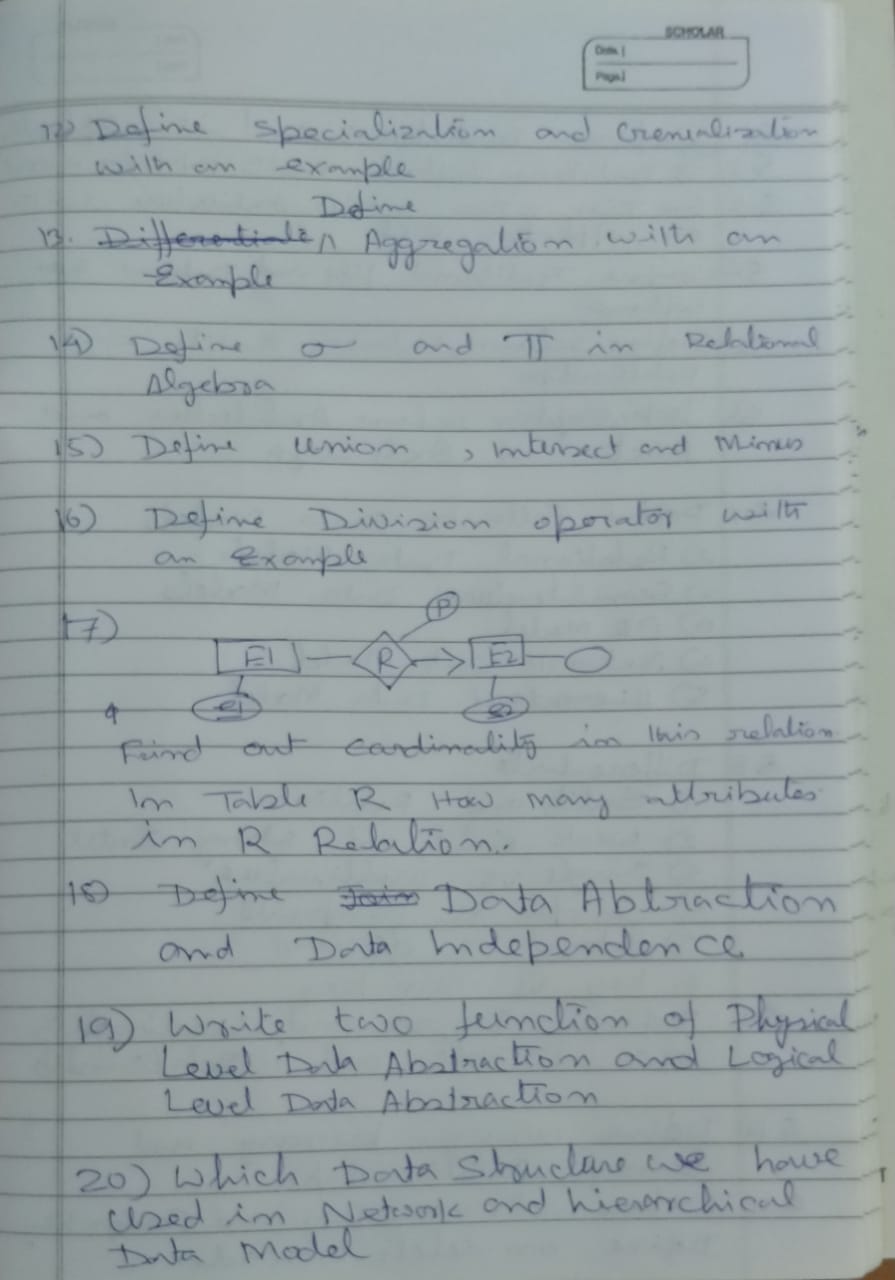 SCHOLAR
Date |
Page |
12) Define Specialization and Crenralization
with an example
Define
13. Differentiate ∧ Aggregation with an
Example
14) Define σ and π in Relational
Algebra
15) Define Union , Intersect and Minus
16) Define Division operator with
an Example
17)
P
E1 R E2
e1 e2
Faind out Cardinality in this relation
In Table R How many attributes
in R Relation.
18) Define Join Data Abtraction
and Data Independence
19) Write two function of Physical
Level Data Abstraction and Logical
Level Data Abstraction
20) Which Data Structure we have
Used in Network and hierarchical
Data Model